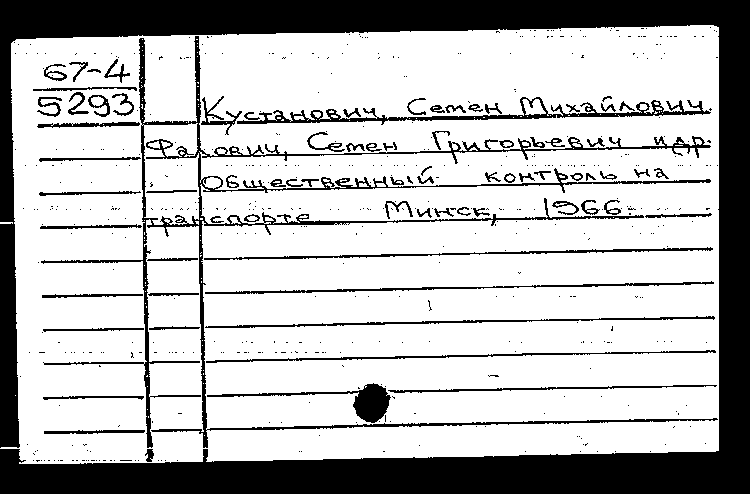 67-4
5293
Кустанович, Семен Михайлович.
Фалович, Семен Григорьевич и др.
Общественный контроль на
транспорте Минск, 1966.